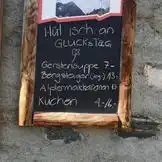 Hüt isch än
GLÜCKSTAG
Gerstensuppe 7.-
Bergsteiger (ag) 13.-
Älplermakkaronen
Kuchen 4.-/6.-